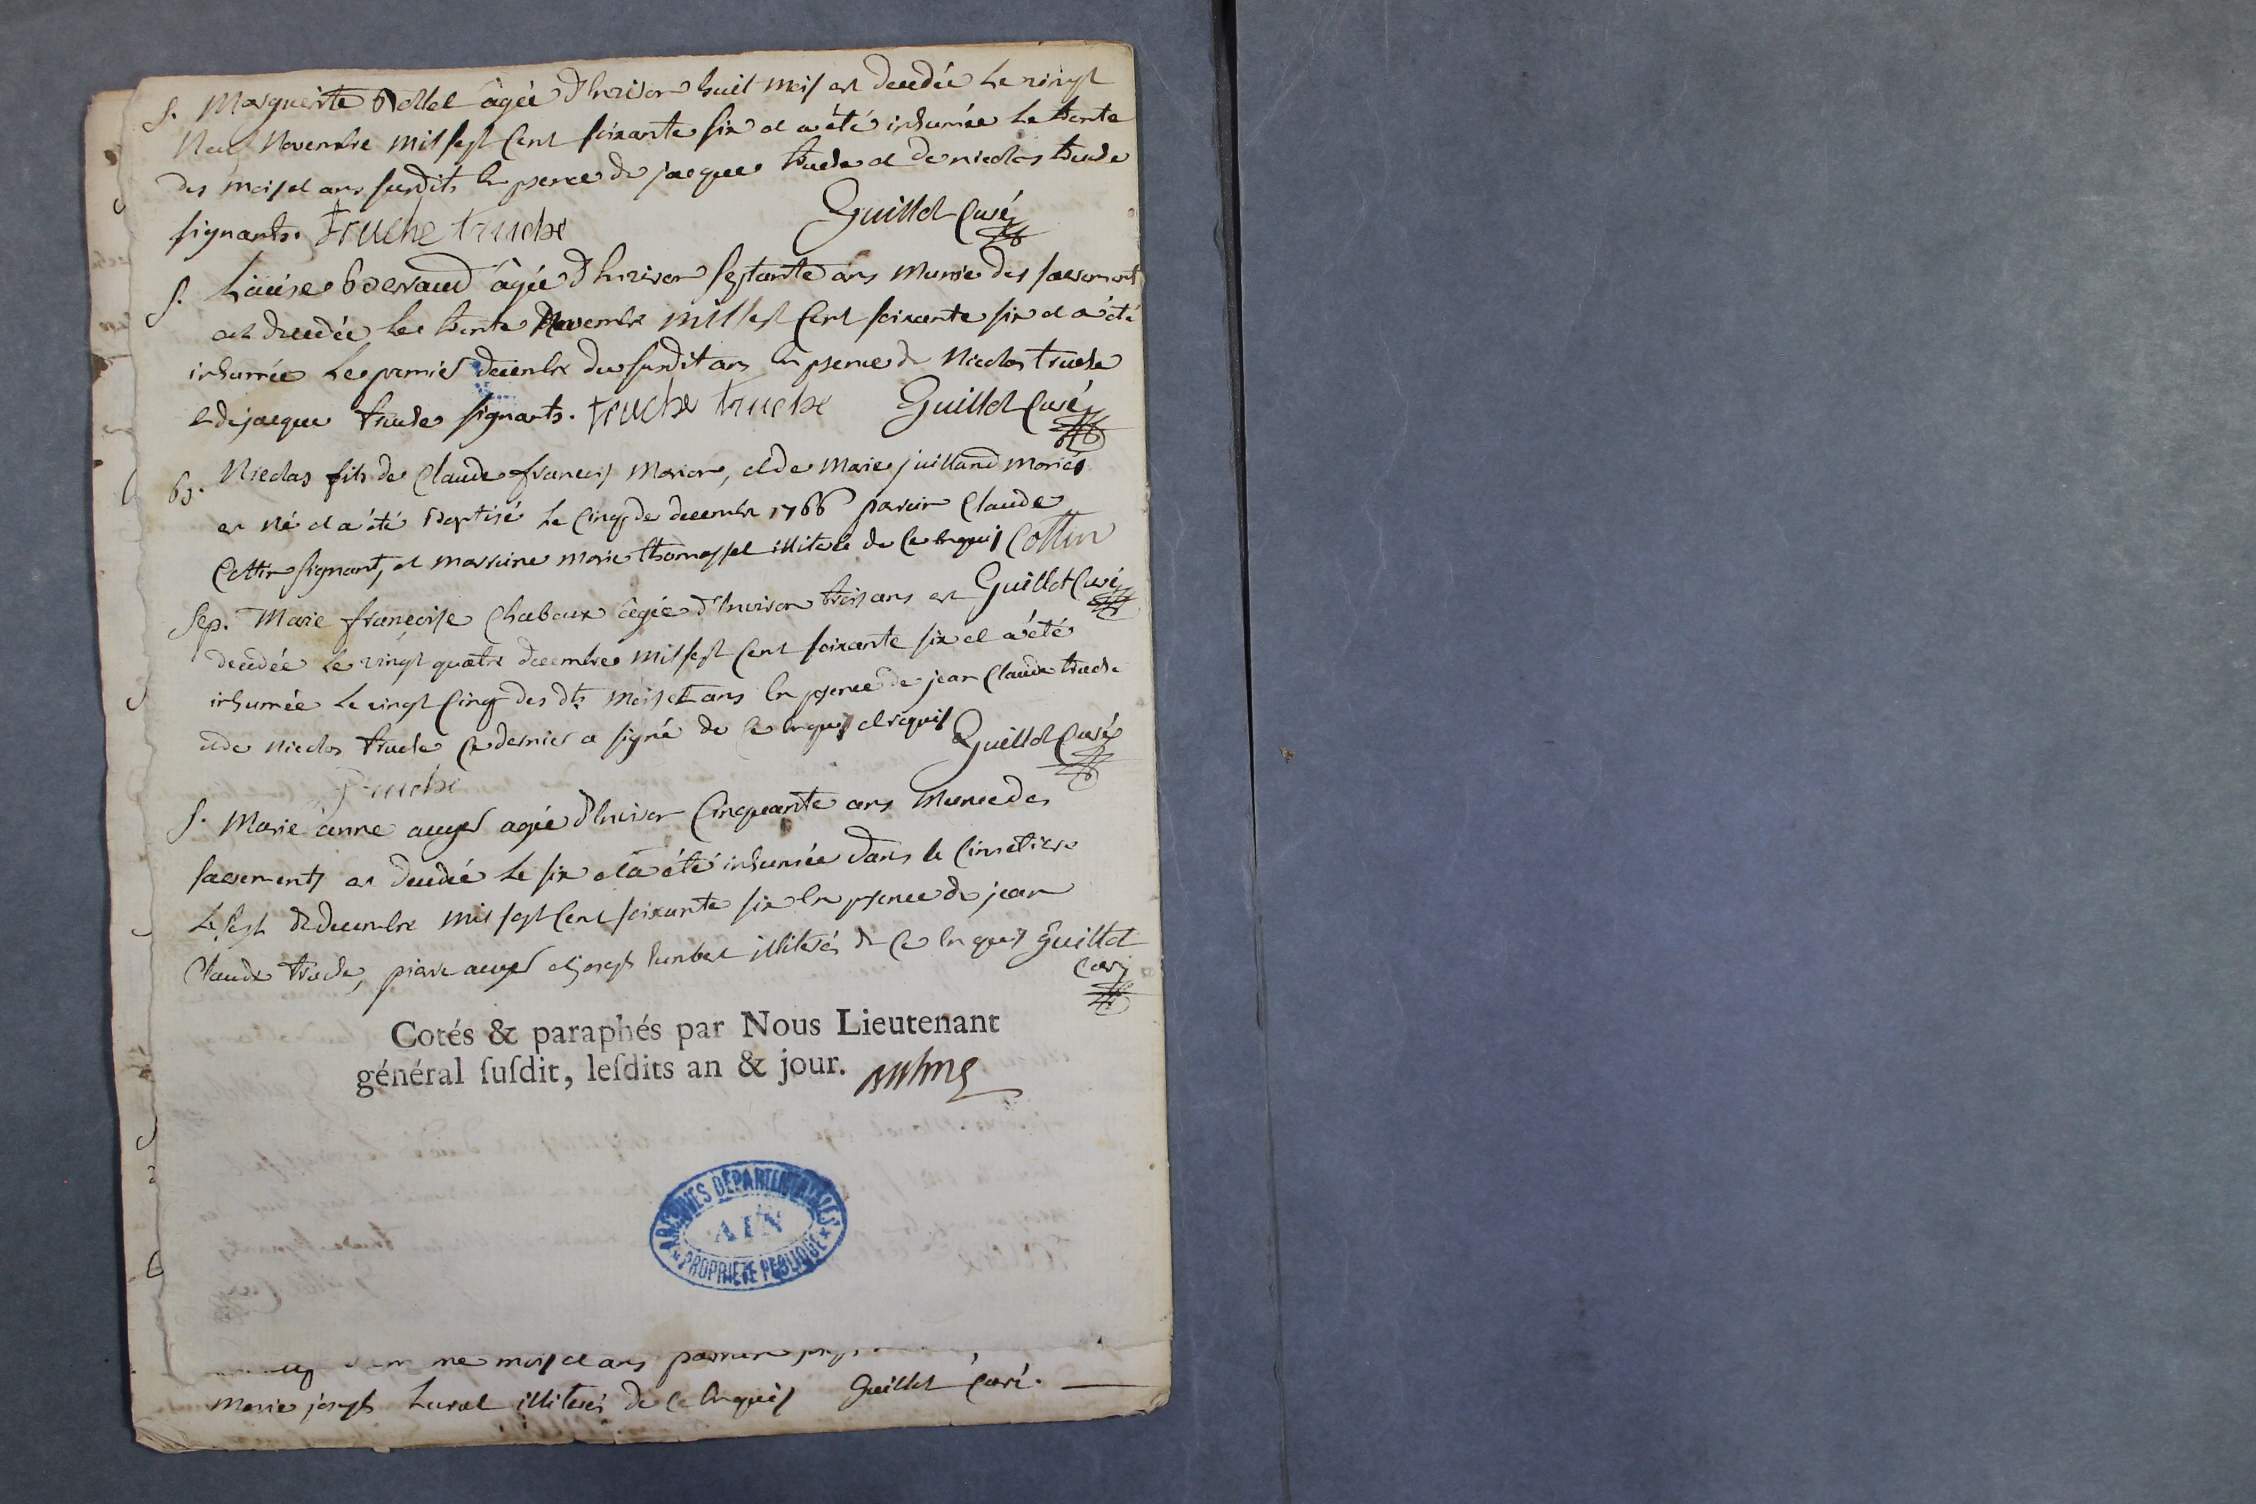 S. Marguerite âgée d'Environ huit mois est decedée Le vingt
Neuf Novembre mil sept Cent soixante six et a été inhumée Le trente
des mois et ans susdits En psence de jacque truche et de nicolas truche
signants. truche truche Guillot Curé
S. Louise âgée d'Environ septante ans Munie des sacrement
est decedée Le trente Novembre mil sept Cent soixante six et a été
inhumée Le premier decembre du susdit ans En psence de Nicolas truche
et de jacque truche signants. truche truche Guillot Curé
bs. Nicolas fils de Claude françois Morier, et de Marie juilland mariés
est né et a été Baptisé Le Cinq de decembre 1766 parrin Claude
Cottin signant, et marraine marie thomasset illiterée de Ce Enquis Cottin
Sep. Marie françoise Chabaux âgée d'Environ trois ans est Guillot Curé
decedée Le vingt quatre decembre mil sept Cent soixante six et a été
inhumée Le vingt Cinq des dts mois et ans En psence de jean Claude truche
et de nicolas truche Ce dernier a signé de Ce Enquis et requis Guillot Curé
truche
S. Marie anne auger agée d'Environ Cinquante ans Munie des
sacrements est decedée Le six et a été inhumée dans le Cimetiere
Le sept de decembre mil sept Cent soixante six En psence de jean
Claude truche, piere auger et joseph humbert illiterés de Ce Enquis Guillot
Curé
Cotés & paraphés par Nous Lieutenant
général susdit, lesdits an & jour.
ARCHIVES DÉPARTEMENTALES
AIN
PROPRIÉTÉ PUBLIQUE
mois et ans parrain
Marie joseph illiterés de Ce Enquis Guillot Curé.